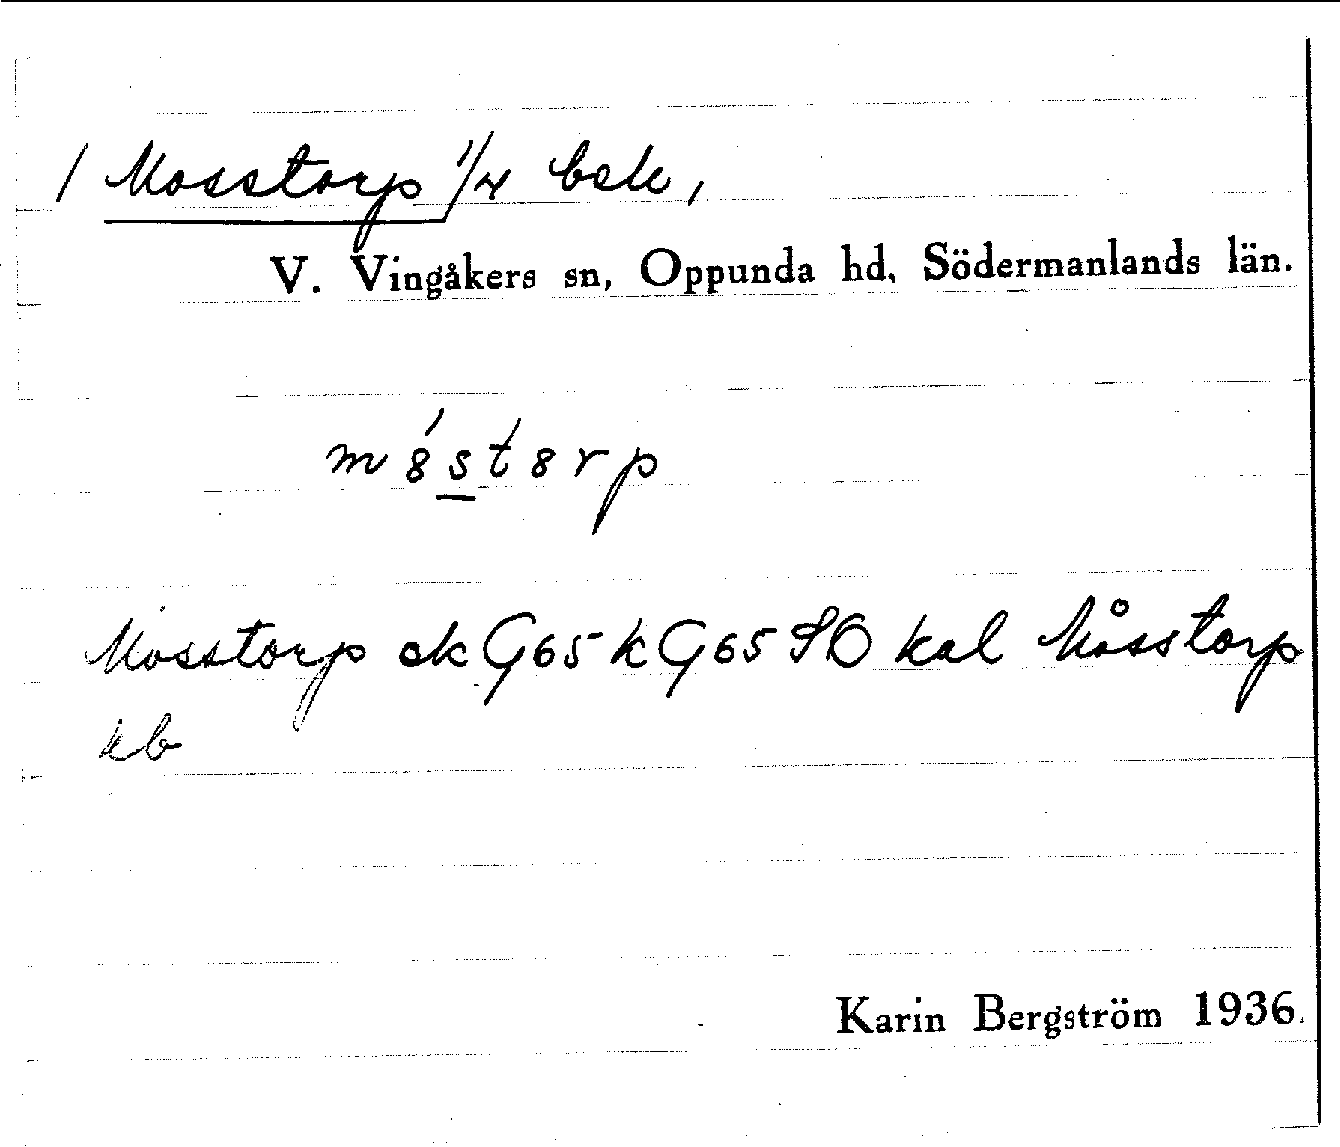 / Mosstorp 1/4 bek,
V. Vingåkers sn, Oppunda hd, Södermanlands län.
m8́st8rp
Mosstorp ek G65 k G65 SO kal Måsstorp
kb
Karin Bergström 1936.